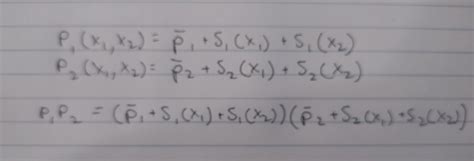 P₁(x₁,x₂) = p̄₁ + S₁(x₁) + S₁(x₂)
P₂(x₁,x₂) = p̄₂ + S₂(x₁) + S₂(x₂)
P₁P₂ = (p̄₁ + S₁(x₁) + S₁(x₂))(p̄₂ + S₂(x₁) + S₂(x₂))